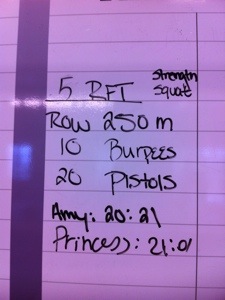 strength
squat
5 RFT
Row 250 m
10 Burpees
20 Pistols
Amy: 20:21
Princess: 21:01